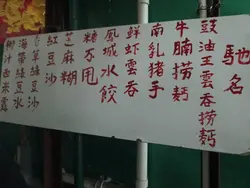 馳名
豉油王雲吞撈麵
牛腩撈麵
南乳豬手
鮮蝦雲吞
鳳城水餃
糖不甩
芝麻糊
紅豆沙
草綠豆沙
海帶綠豆水
椰汁西米露